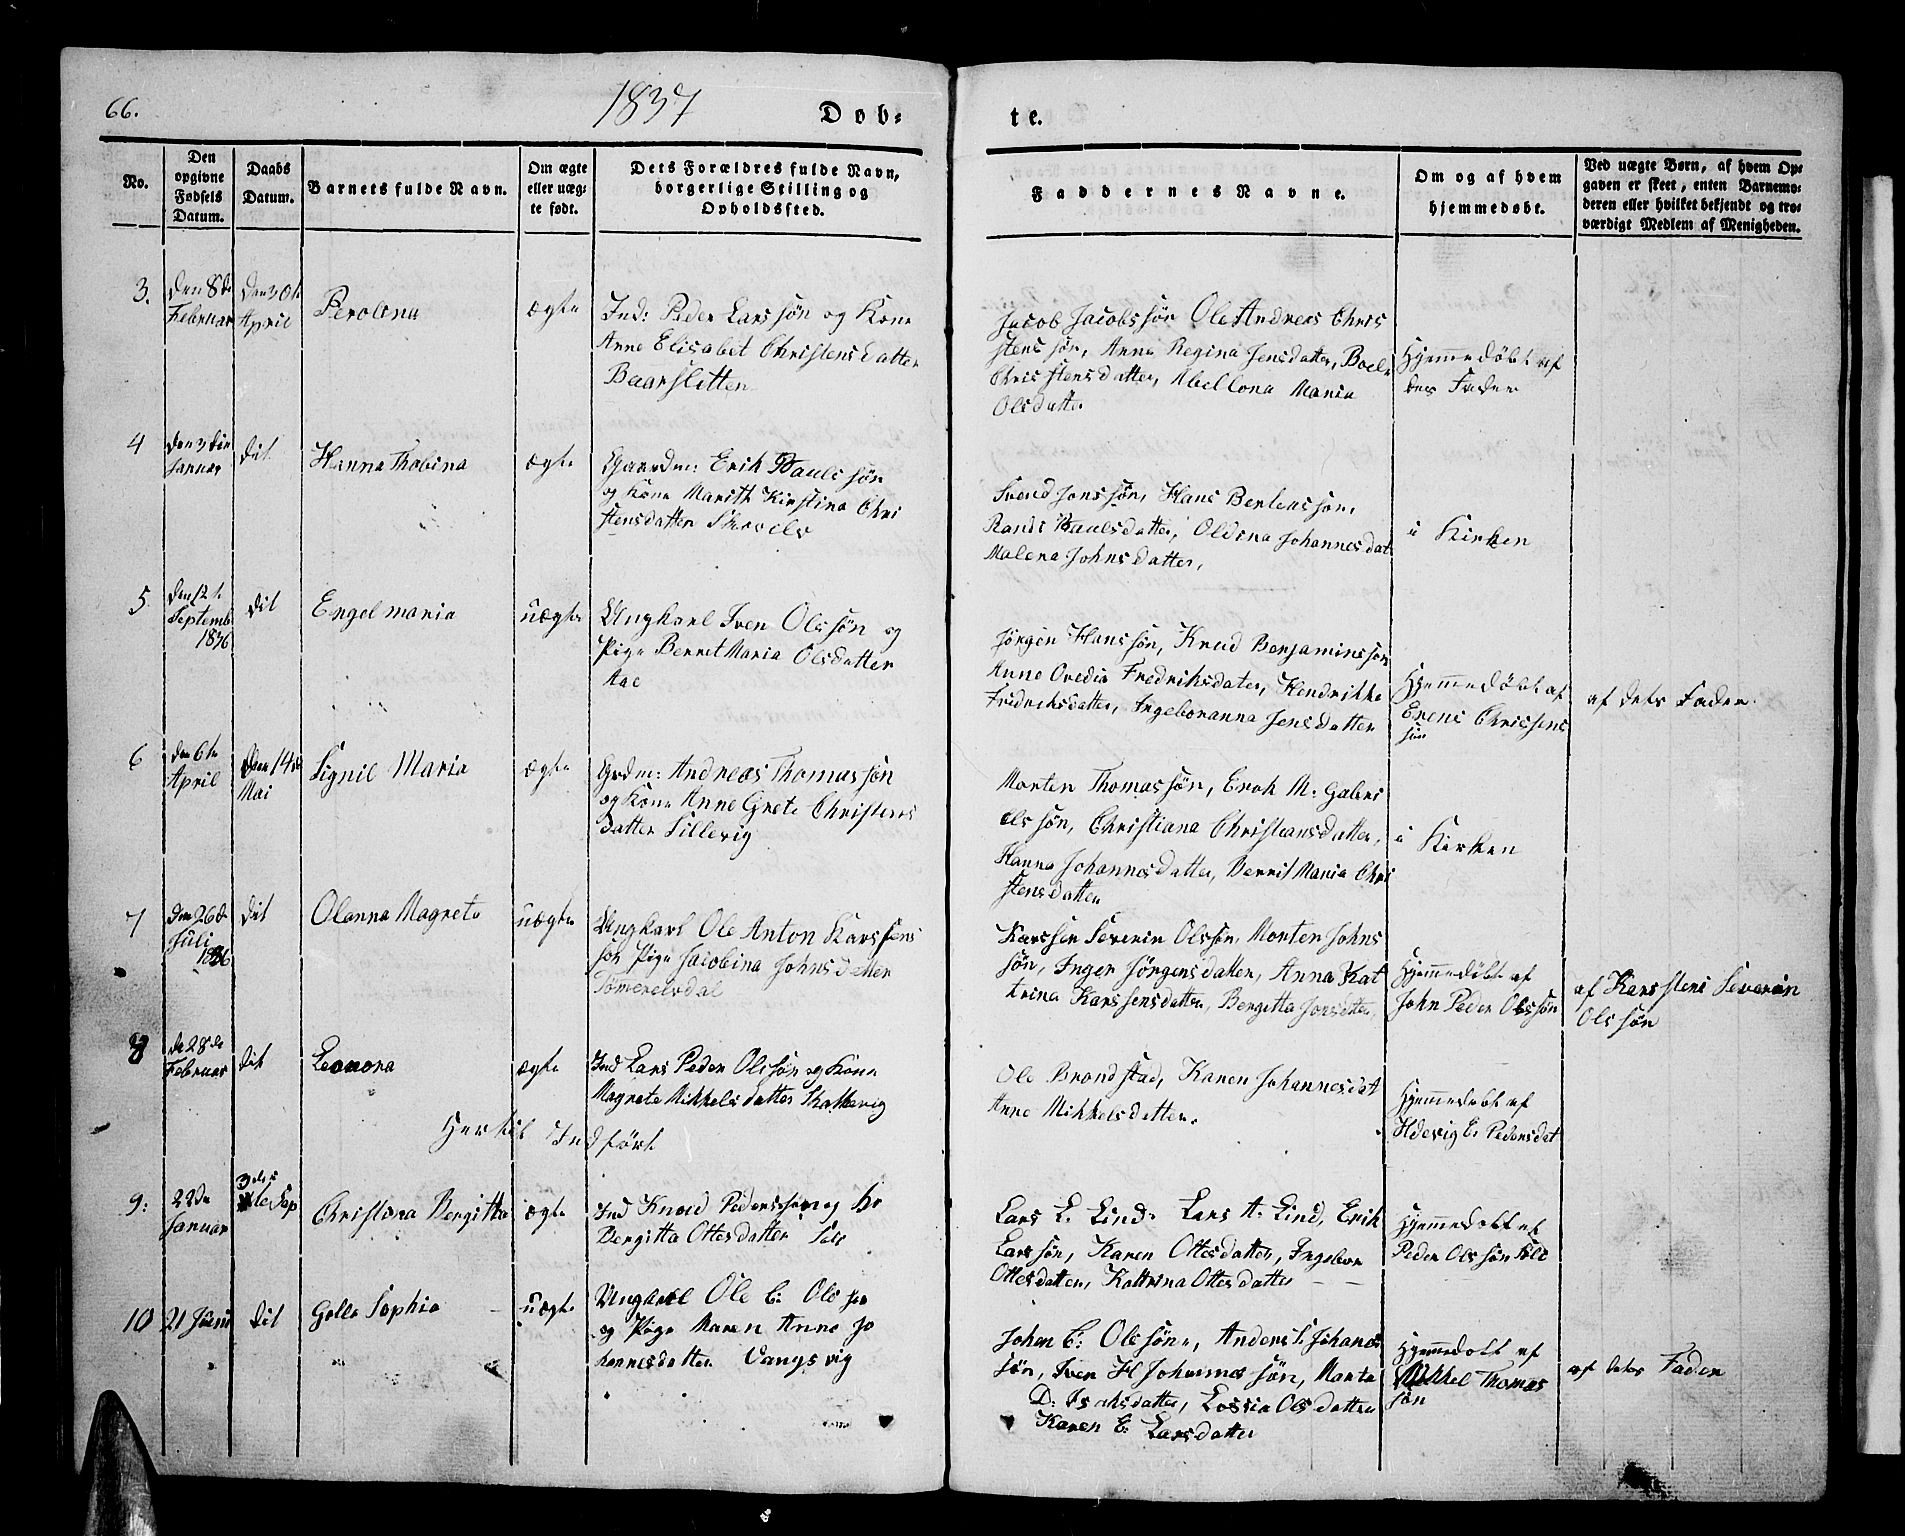 66.
1837
Døb-
te.
No.
Den opgivne Fødsels Datum.
Daabs Datum.
Barnets fulde Navn.
Om ægte eller uægte født.
Dets Forældres fulde Navn, borgerlige Stilling og Opholdssted.
Faddernes Navne.
Om og af hvem hjemmedøbt.
Ved uægte Børn, af hvem Opgaven er skeet, enten Barnemoderen eller hvilket bekjendt og troværdigt Medlem af Menigheden.
3.
Den 8de Februar
April
Perolina
ægte
Ind: Peder Larssøn og Kone
Anne Elisabet Christensdatter
Jacob Jacobssøn Ole Andreas Chri
stenssøn, Anne Regina Jensdatter, Boel
Christensdatter, Abellona Maria
Olsdatter
Hjemmedøbt af
Fader
4
Januar
dit
Hanna Thobina
ægte
Gaardm: Erik Paulssøn
og Kone Marith Kirstina Chri
stensdatter
Svend Jonssøn, Hans
Randi Paulsdatter, Oldina Johannesdat
Malena Johnsdatter,
i Kirken
5
den 12t
Septemb
1836
dit
Engel maria
uægte
Ungkarl Iven Olssøn og
Pige Berret Maria Olsdatter
Aae
Jørgen Hanssøn, Knud Benjaminssøn
Anne Ovedia Fredriksdater, Hendrikke
Fredriksdatter, Ingeboranna Jensdatter
Hjemmedøbt af
søn
af dets Fader
6
den 6te
April
Den 14de
Mai
Signil Maria
ægte
Grdm: Andreas Thomassøn
og Kone Anne Grete Christens
datter Sillevig
Morten Thomassøn, M. Gabri
elssøn, Christiana Christiansdatter,
Hanna Johannesdatter, Berrit Maria Chri
stensdatter
i Kirken
7
den 26de
Juli
1836
dit
Olanna Magrete
uægte
Ungkarl Ole Anton Karssens
søn Pige Jacobina Johnsdatter
Karssen Severin Olssøn, Morten Johns
søn, Inger Jørgensdatter, Anna Kat
trina Karssensdatter, Bergitta Jonsdatter,
Hjemmedøbt af
John Peder Olssøn
af Karsstens Severin
Olssøn
8
28de
Februar
dit
Leonora
ægte
Ind Lars Peder Olssøn og Kone
Magrete Mikkelsdatter
Ole Brondstad, Karen Johannesdat
Anne Mikkelsdatter.
Hjemmedøbt af
Hdevig E. Pedersdat
Hertil Indført
9:
22de
Januar
Christina Bergitta
ægte
Ind Knud Pederssøn og Ko
Bergitta Ottesdatter
Lars L. Lind. Lars A. Lind, Erik
Larssøn, Karen Ottesdatter, Ingebor
Ottesdatter, Kattrina Ottesdatter
Hjemmedøbt af
Peder Olssøn
10
21 Juni
dit
Golla Sophia
uægte
Ungkarl Ole C. Olssøn
og Pige Maren Anne Jo
hannesdatter Vangsvig
Johan C: Olssøn, Anders Johanes
søn, Iven H Johannessøn, Marta
D. Isaksdatter, Lossia Olsdatter
Karen E: Larsdatter
Hjemmedøbt af
Mikkel Thomas
søn
af dets Fader